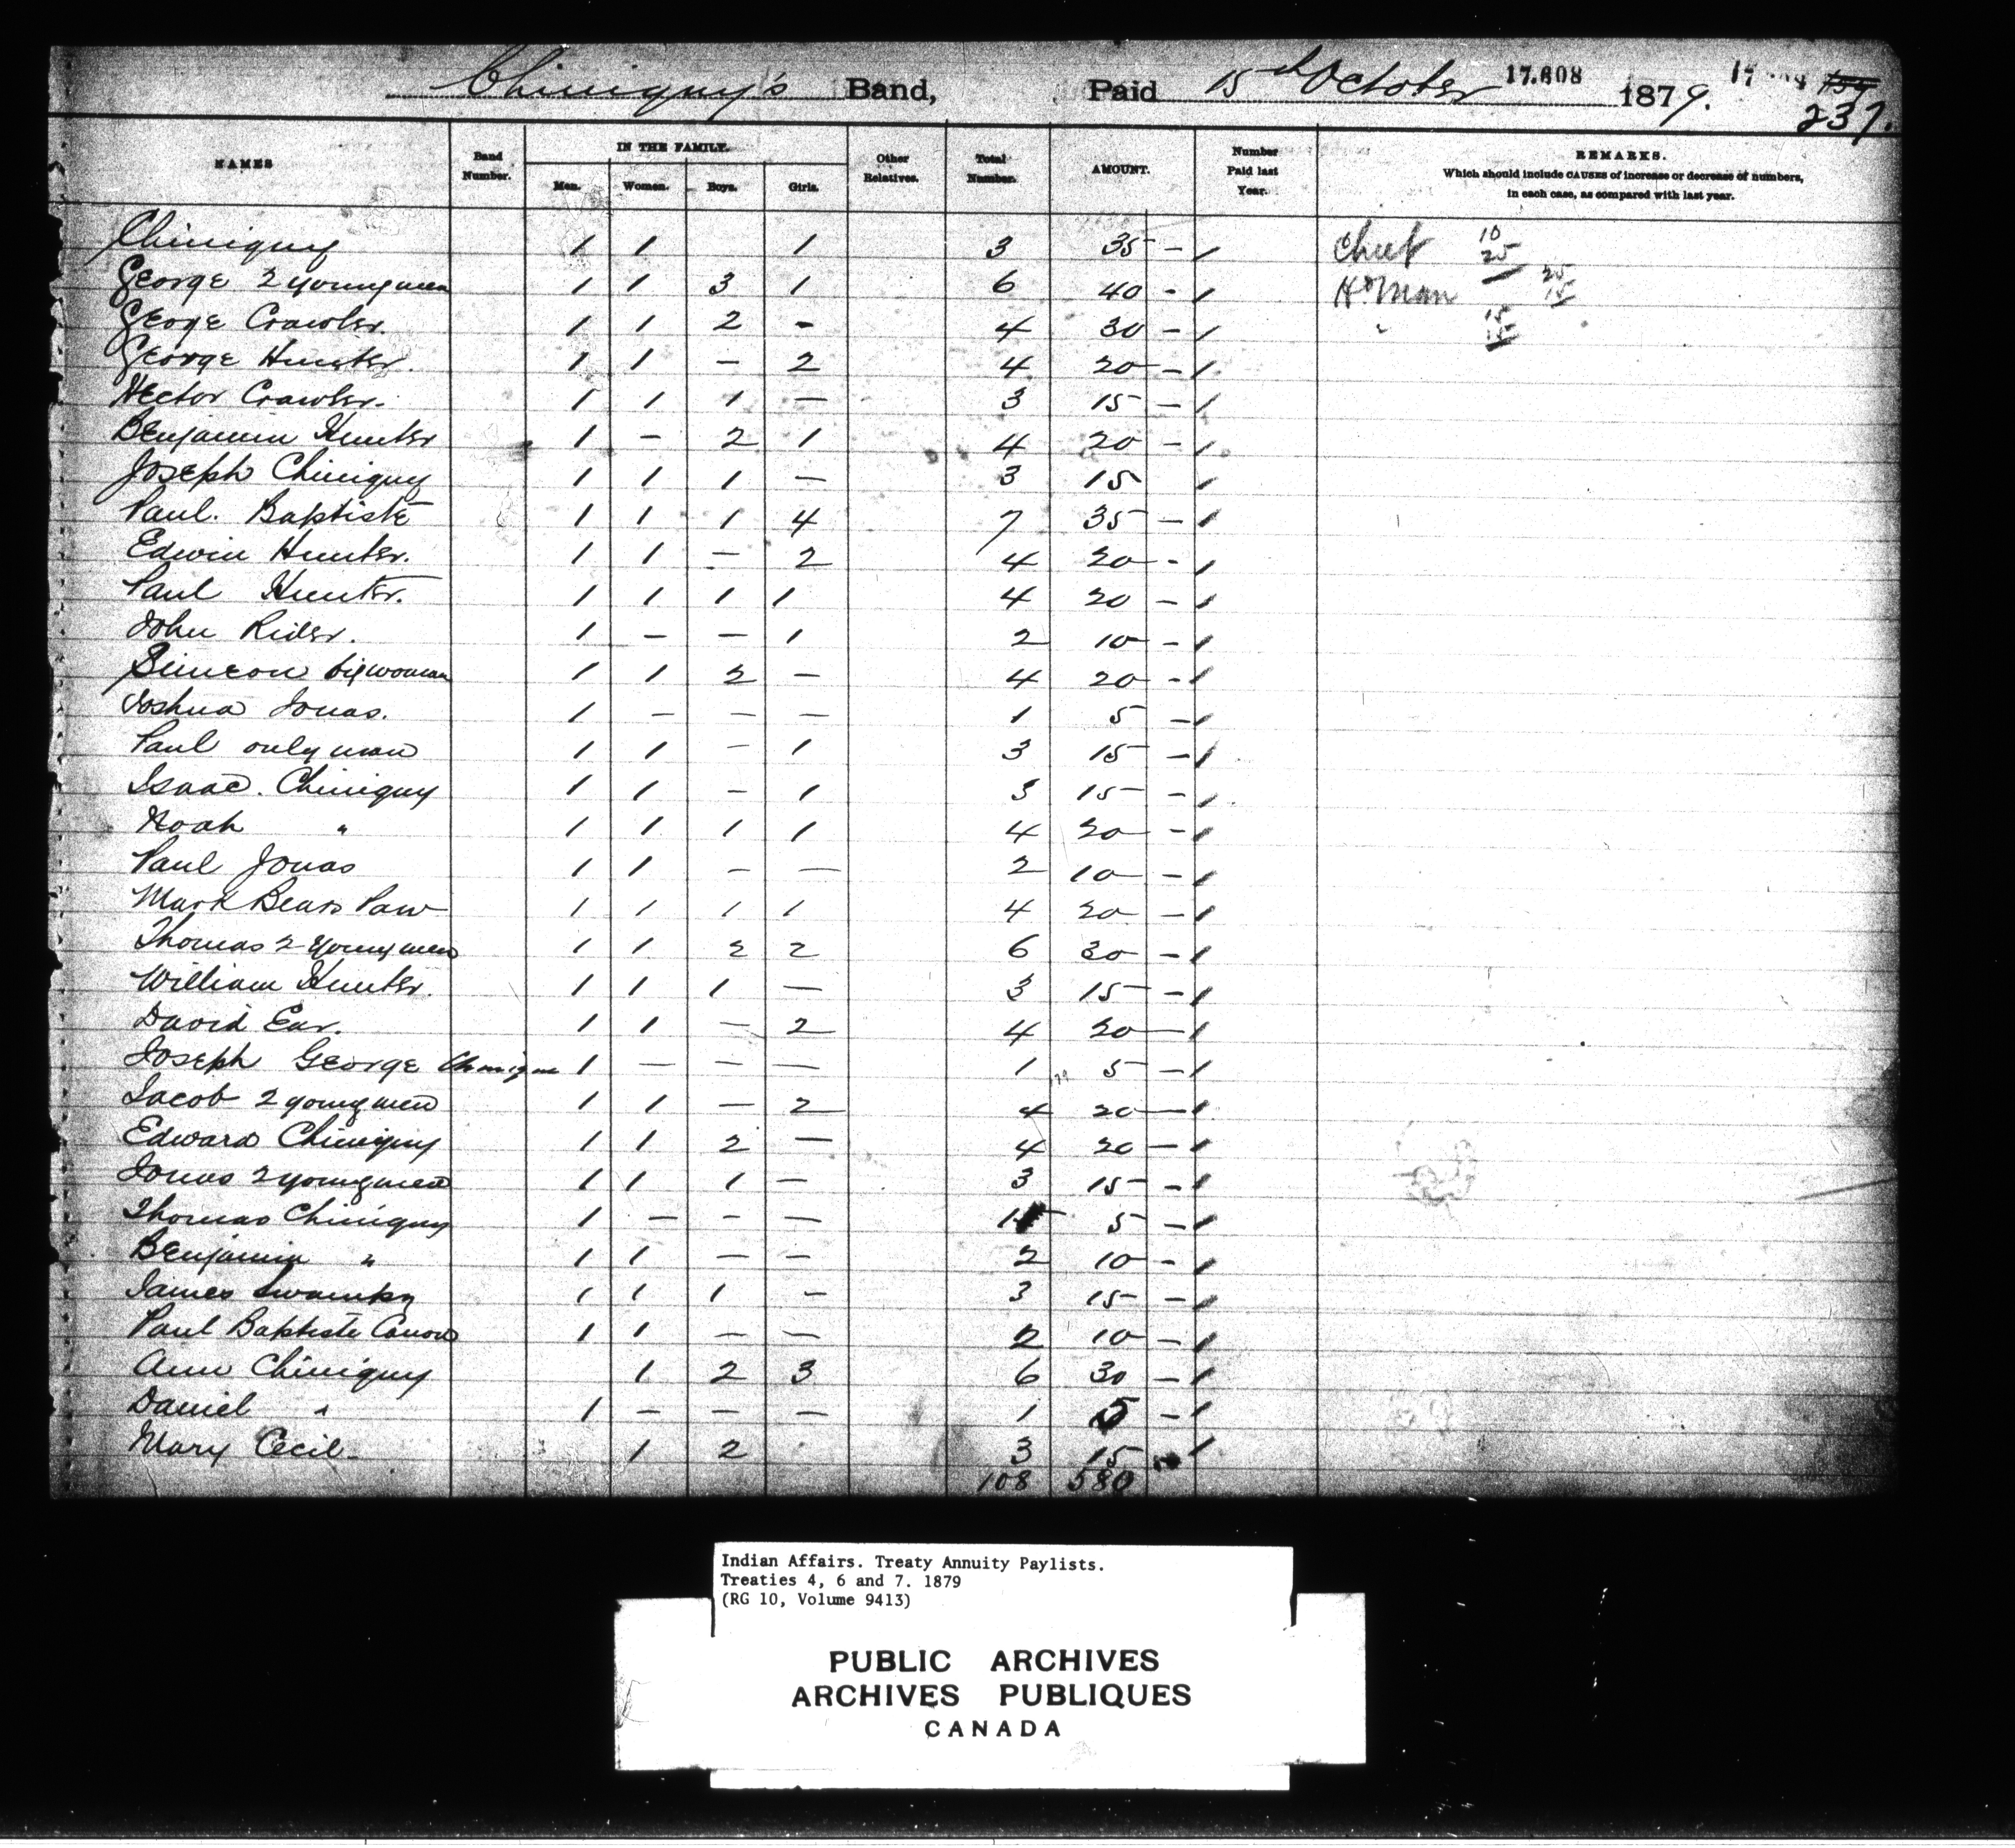 Chiniquy's Band, Paid 15th October 17.608 1879. 237.
NAMES Band Number. IN THE FAMILY. Men. Women. Boys. Girls. Other Relatives. Total Number. AMOUNT. Number Paid last Year. REMARKS. Which should include CAUSES of increase or decrease of numbers, in each case, as compared with last year.
Chiniquy 1 1 1 3 35 - 1 Chief 10 25
George 2 youngmen 1 1 3 1 6 40 - 1 Hd Man 25 15
George Crawler. 1 1 2 - 4 30 - 1 " 15 15
George Hunter. 1 1 - 2 4 20 - 1
Hector Crawler. 1 1 1 - 3 15 - 1
Benjamin Hunter 1 - 2 1 4 20 - 1
Joseph Chiniquy 1 1 1 - 3 15 1
Paul. Baptiste 1 1 1 4 7 35 - 1
Edwin Hunter. 1 1 - 2 4 20 - 1
Paul Hunter. 1 1 1 1 4 20 - 1
John Rider. 1 - - 1 2 10 - 1
Simeon bigwoman 1 1 2 - 4 20 - 1
Joshua Jonas. 1 - - - 1 5 - 1
Paul only man 1 1 - 1 3 15 - 1
Isaac. Chiniquy 1 1 - 1 3 15 - 1
Noah " 1 1 1 1 4 20 - 1
Paul Jonas 1 1 - - 2 10 - 1
Mark Bears Paw 1 1 1 1 4 20 - 1
Thomas 2 youngmen 1 1 2 2 6 30 - 1
William Hunter. 1 1 1 - 3 15 - 1
David Ear. 1 1 - 2 4 20 - 1
Joseph George 1 - - - 1 5 - 1
Jacob 2 youngmen 1 1 - 2 4 20 - 1
Edward Chiniquy 1 1 2 - 4 20 - 1
Jonas 2 youngmen 1 1 1 - 3 15 - 1
Thomas Chiniquy 1 - - - 1 5 - 1
Benjamin " 1 1 - - 2 10 - 1
James Swampy 1 1 1 - 3 15 - 1
Paul Baptiste 1 1 - - 2 10 - 1
Ann Chiniquy 1 2 3 6 30 - 1
Daniel " 1 - - - 1 5 - 1
Mary Cecil 1 2 3 15 1
108 580
Indian Affairs. Treaty Annuity Paylists.
Treaties 4, 6 and 7. 1879
(RG 10, Volume 9413)
PUBLIC ARCHIVES
ARCHIVES PUBLIQUES
CANADA